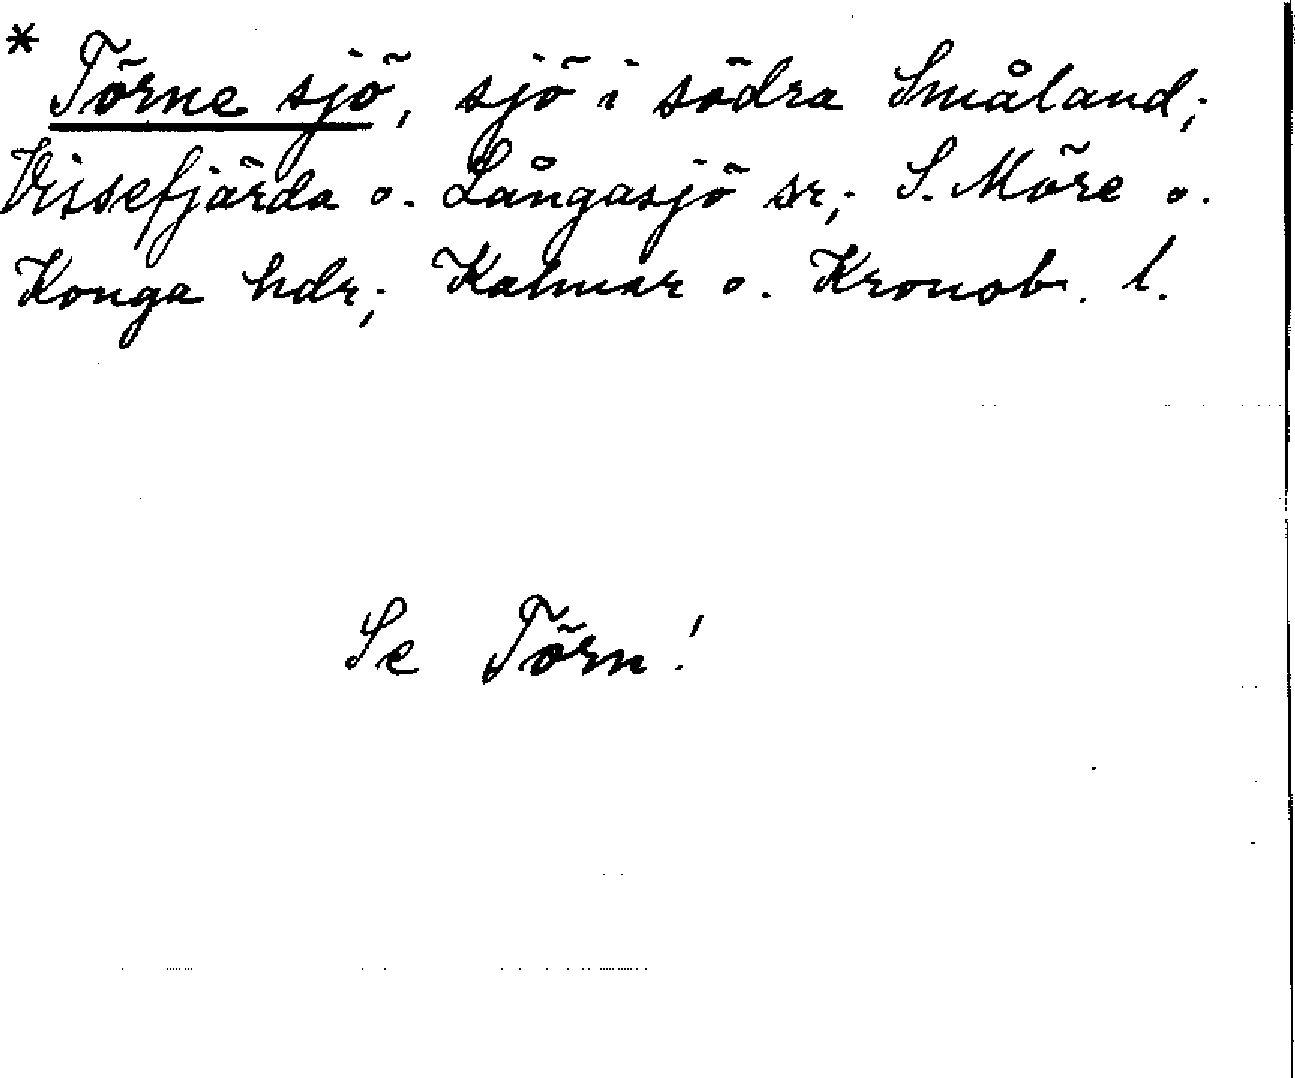 * Törne sjö, sjö i södra Småland;
Vissefjärda o. Långasjö sr; S. Möre o.
Konga hdr; Kalmar o. Kronob. l.
Se Törn!